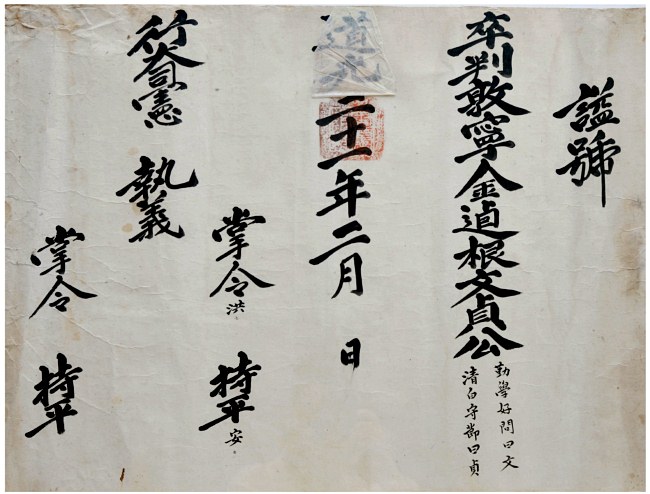 謚號
卒判敦寧金逌根文貞公
勤學好問曰文
清白守節曰貞
道光二十一年二月 日
掌令洪 持平安
行大司憲 執義
掌令 持平